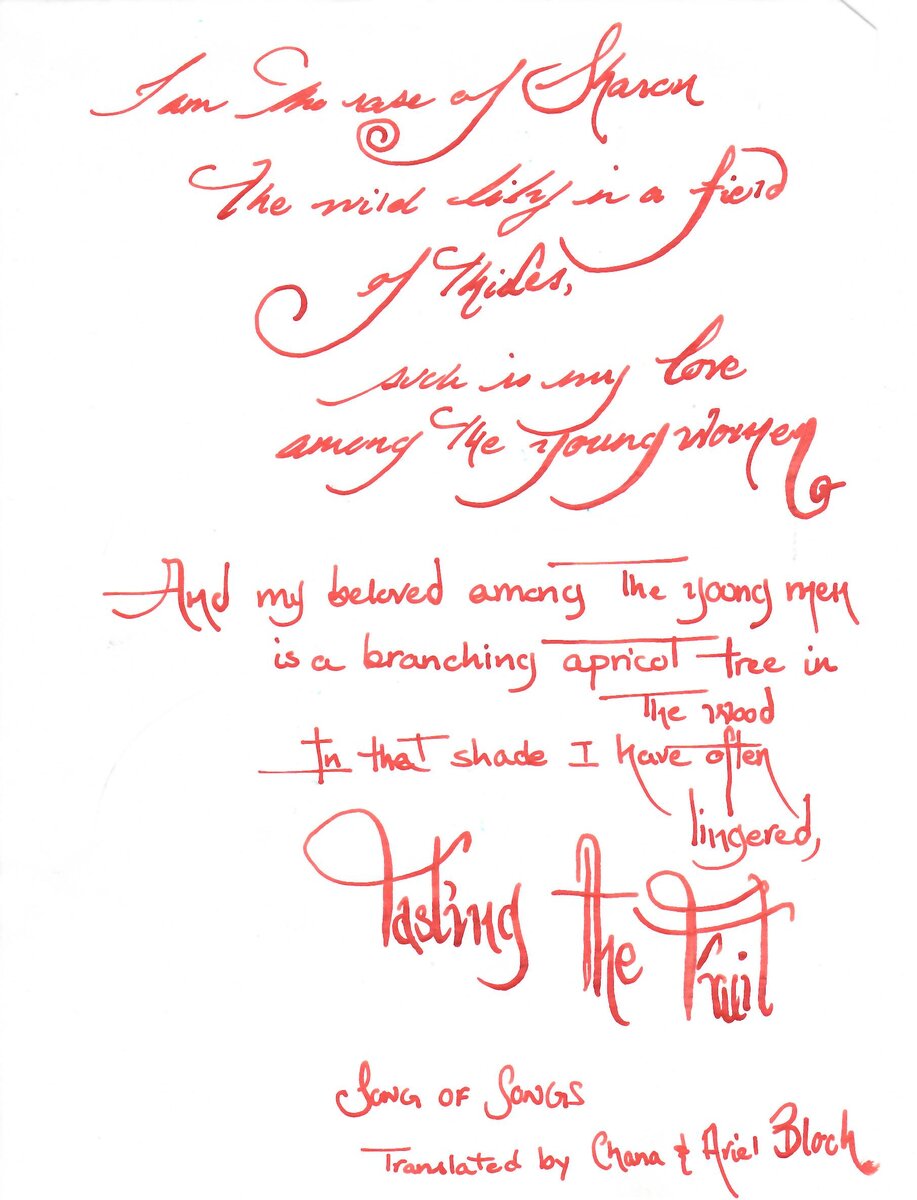 I am the rose of Sharon
The wild lily in a field
of thistles,
such is my love
among the young women
And my beloved among the young men
is a branching apricot tree in
the wood
In that shade I have often
lingered,
Tasting the Fruit
Song of Songs
Translated by Chana & Ariel Bloch